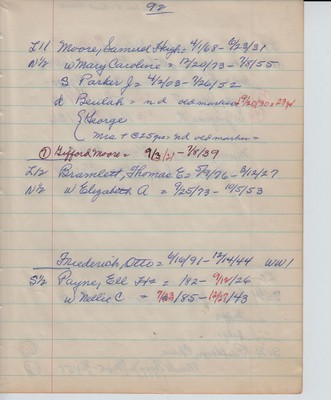 92
L11 Moore, Samuel Hugh = 4/1/68 - 6/23/31
N½ w Mary Caroline = 12/20/73 - 7/8/55
S Parker J = 4/2/03 - 7/26/52
d Beulah = n.d. old marker
{George
Mrs + 325 yrs = nd old marker =
① Gifford Moore = 9/3/21 - 7/8/39
L12 Bramlett, Thomas E = 5/9/76 - 8/12/27
N½ w Elizabeth A = 9/25/73 - 10/5/53
Friederich, Otto = 6/10/91 - 12/14/44 WW1
S½ Payne, Ell = 182 - 9/12/26
w Nellie C = /85 - /43